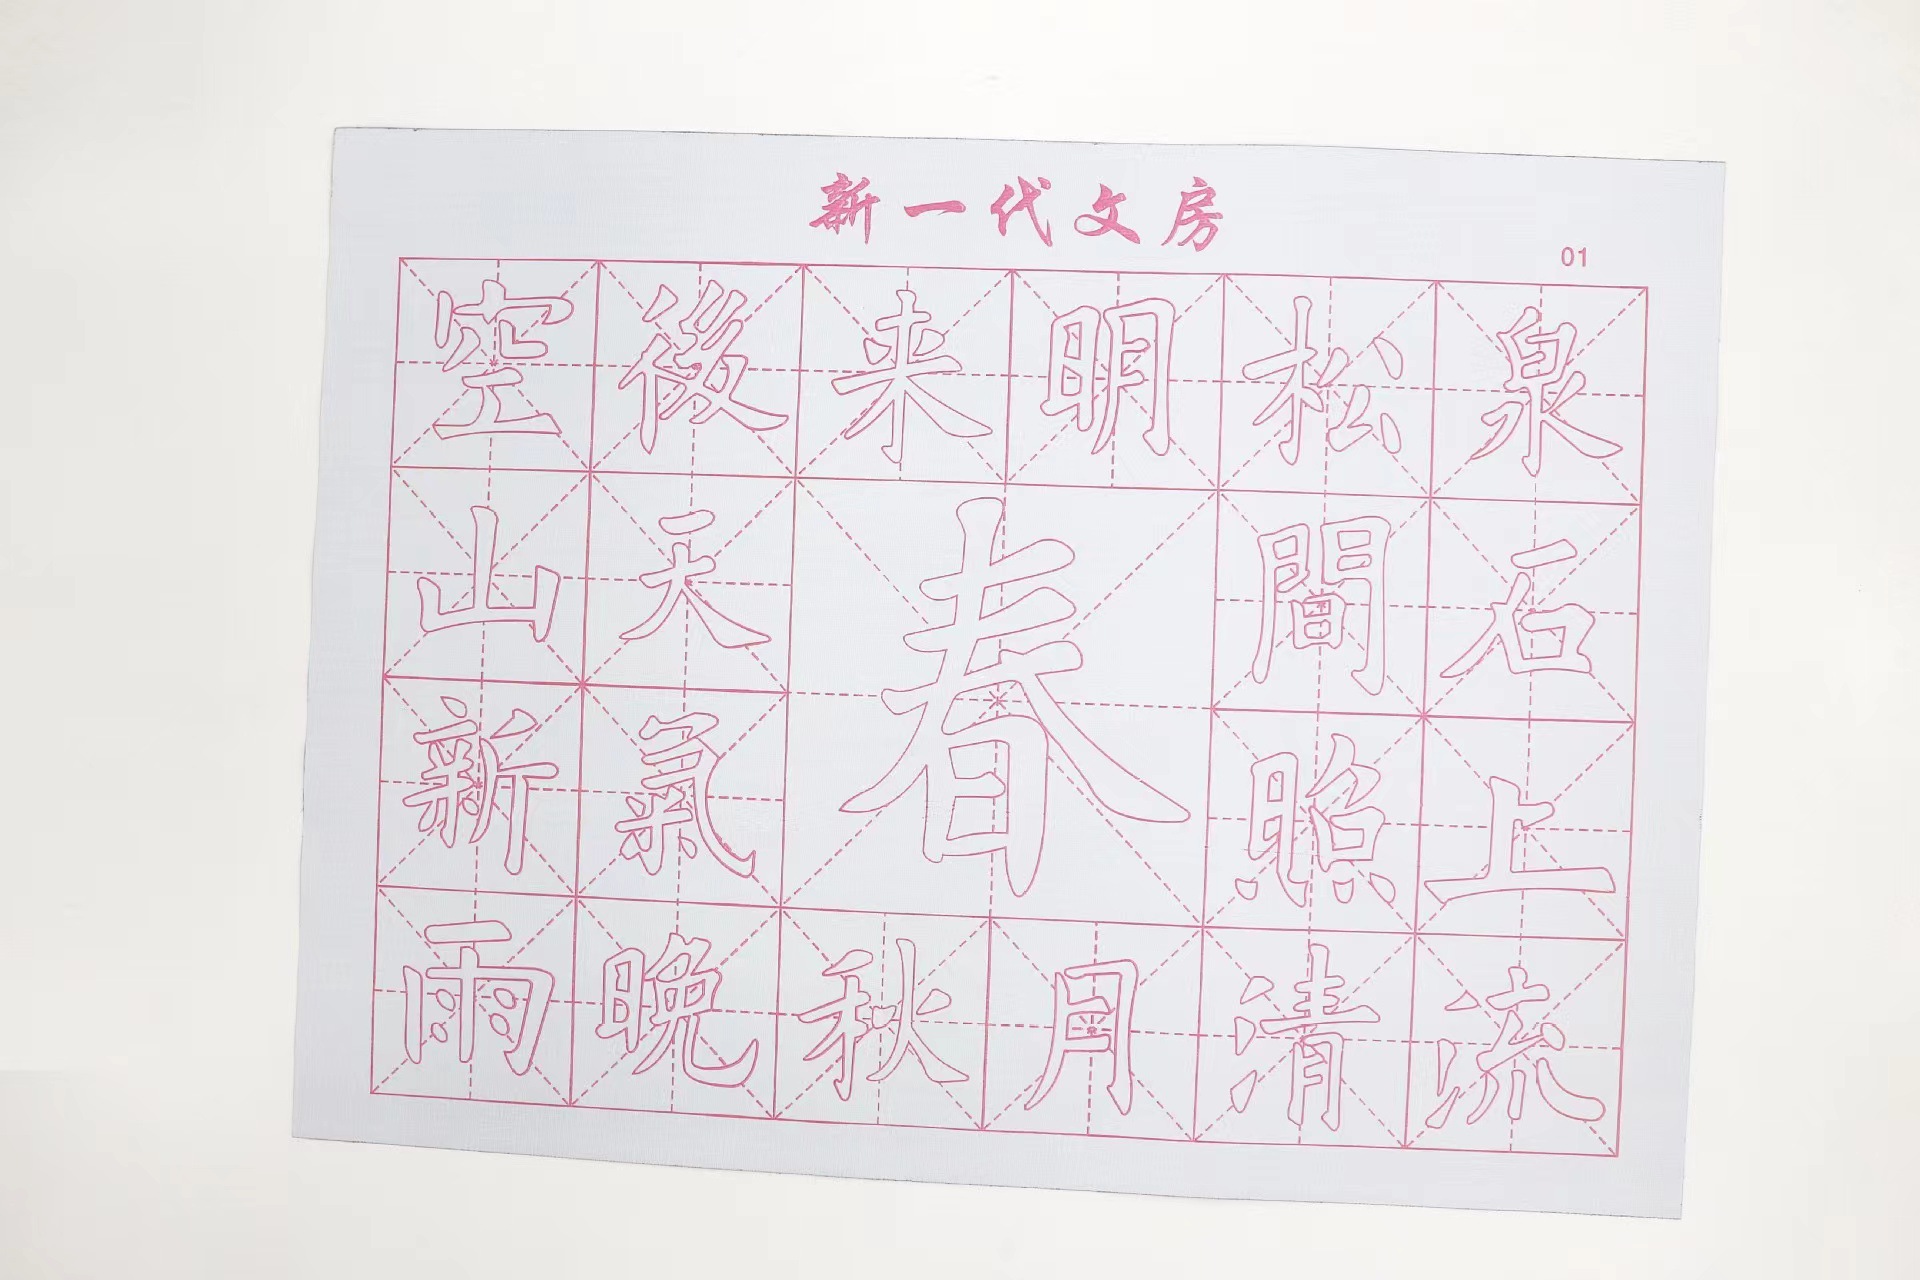 新一代文房
01
空山新雨
後天氣晚
来秋
春
明月
松間照清
泉石上流